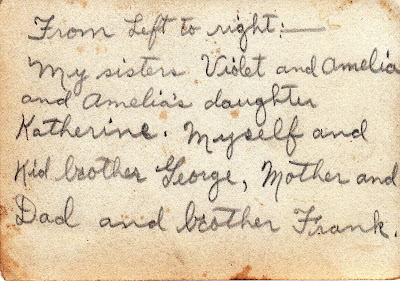 From Left to right:—
My sisters Violet and Amelia
and Amelia's daughter
Katherine. Myself and
Kid brother George, Mother and
Dad and brother Frank.